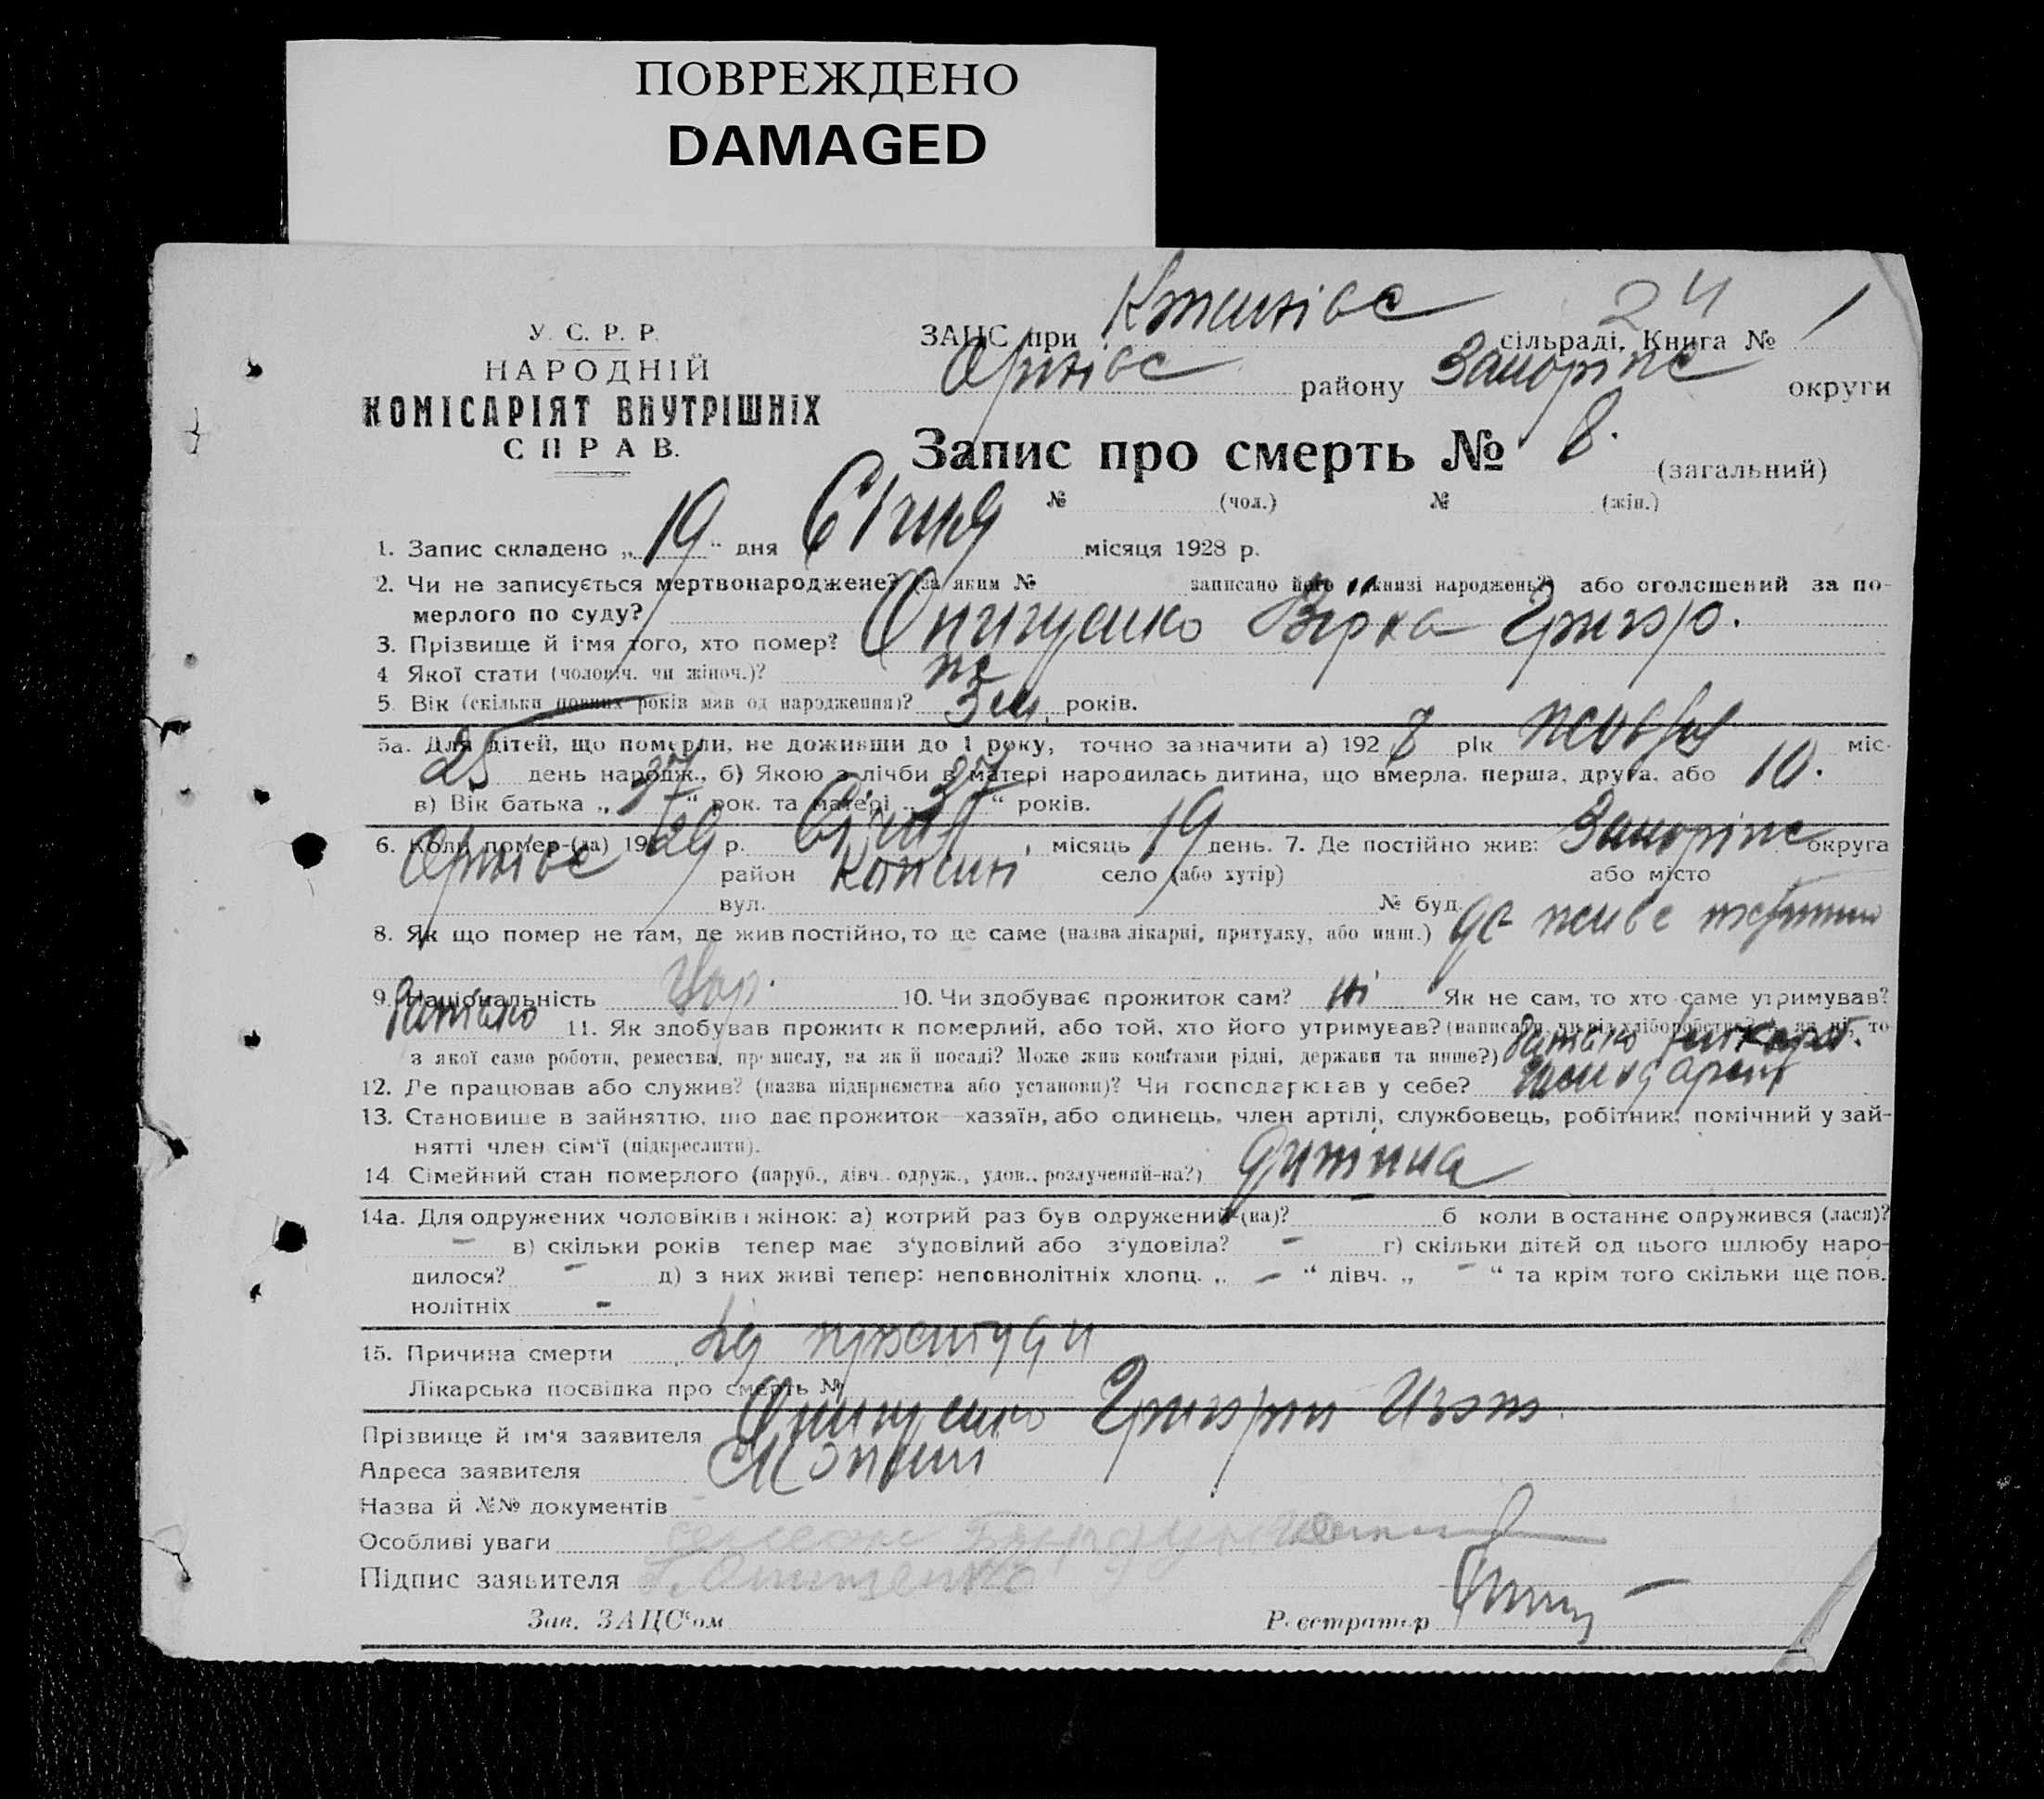 ПОВРЕЖДЕНО
DAMAGED
У. С. Р. Р.
НАРОДНІЙ
КОМІСАРІЯТ ВНУТРІШНІХ
СПРАВ.
ЗАЦС при сільраді. Книга № 1
24
району Запоріж округи
Запис про смерть № 8. (загальний)
№ (чол.) № (жін.)
1. Запис складено „ 19 " дня Січня місяця 1928 р.
2. Чи не записується мертвонароджене? (за яким № записано його в книзі народжень?) або оголошений за по-
мерлого по суду?
3. Прізвище й ім'я того, хто помер? Онищенко Вірка Григор.
4 Якої стати (чоловіч. чи жіноч.)? ж
5. Вік (скільки повних років мав од народження)? 3 м. років.
5а. Для дітей, що померли, не доживши до 1 року, точно зазначити а) 192 8 рік жовтня міс-
25 день народж., б) Якою з лічби в матері народилась дитина, що вмерла. перша, друга. або 10.
в) Вік батька „ 37 " рок. та матері „ 37 " років.
6. Коли помер-(ла) 19 29 р. Січня, місяць 19 день. 7. Де постійно жив: Запоріж округа
район село (або хутір) або місто
вул. № буд.
8. Як що помер не там, де жив постійно, то де саме (назва лікарні, притулку, або инш.) де живе
9. Національність Укр. 10. Чи здобуває прожиток сам? ні Як не сам, то хто саме утримував?
Батько 11. Як здобував прожиток померлий, або той, хто його утримував? (написати, чи від хліборобства? А як ні, то
з якої само роботи, ремества, промислу, на якій посаді? Може жив коштами рідні, держави та инше?) Батько
12. Де працював або служив? (назва підприємства або установи)? Чи господарював у себе?
13. Становище в зайняттю, що дає прожиток—хазяїн, або одинець, член артілі, службовець, робітник, помічний у зай-
нятті член сім'ї (підкреслити).
14 Сімейний стан померлого (паруб., дівч. одруж., удов., розлучений-на?) дитина
14а. Для одружених чоловіків і жінок: а) котрий раз був одружений-(на)? б коли в останнє одружився (лася)?
– в) скільки років тепер має з'удовілий або з'удовіла? – г) скільки дітей од цього шлюбу наро-
дилося? – д) з них живі тепер: неповнолітніх хлопц. „ – " дівч. „ – " та крім того скільки ще пов.
нолітніх –
15. Причина смерти від простуди
Лікарська посвідка про смерть №
Прізвище й ім'я заявителя Онищенко Григорій
Адреса заявителя
Назва й №№ документів
Особливі уваги
Підпис заявителя Онищенко
Зав. ЗАЦС'ом Реєстратор